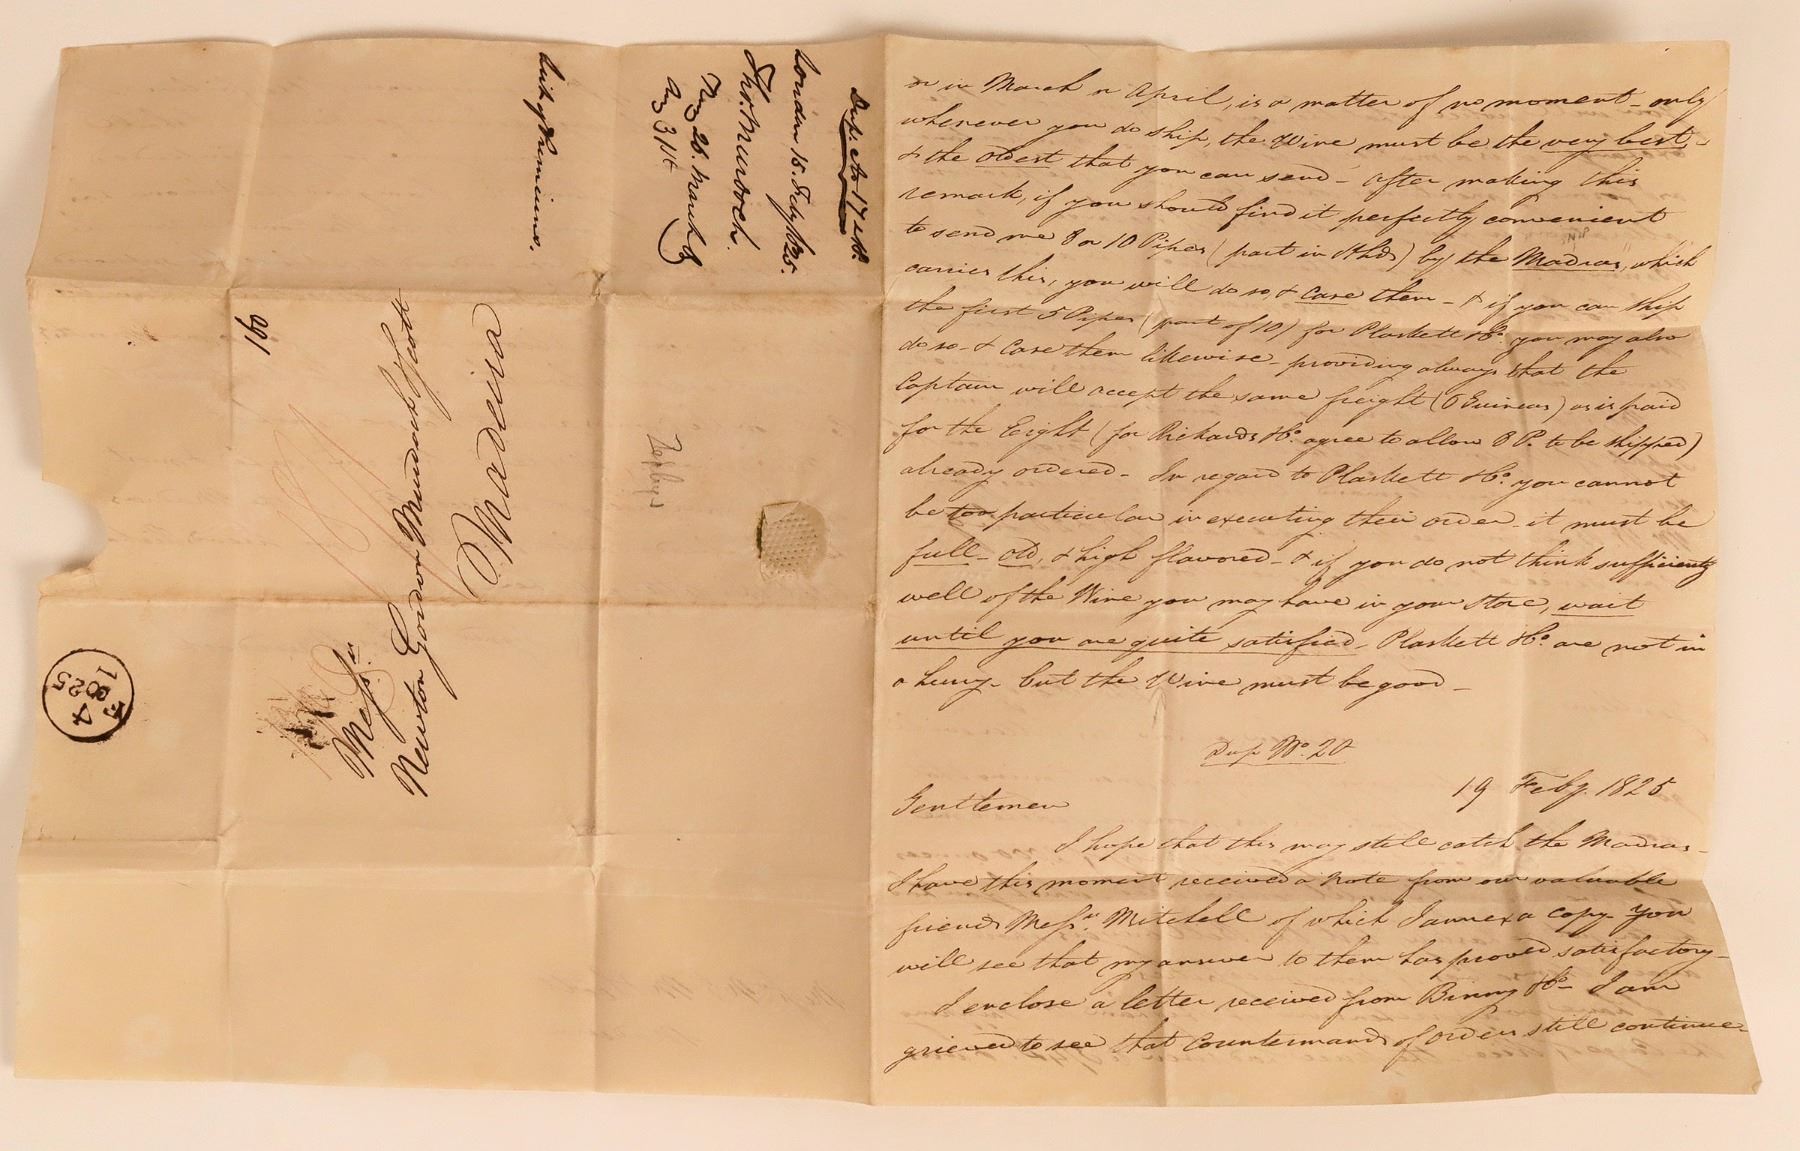 or in March or April, is a matter of no moment - only
whenever you do ship, the Wine must be the very best, -
& the oldest that you can send - after making this
remark, if you should find it perfectly convenient
to send me 8 or 10 Pipes (part in Hhds) by the Madras, which
carries this, you will do so, & case them - & if you can ship
the first 5 Pipes (part of 10) for Plaskett & Co. you may also
do so - & case them likewise - providing always that the
Captain will accept the same freight (6 Guineas) as is paid
for the Eight (for Rickards & Co. agree to allow 8 P. to be shipped)
already ordered - In regard to Plaskett & Co. you cannot
be too particular in executing their order - it must be
full - old, & high flavored - & if you do not think sufficiently
well of the Wine you may have in your Store, wait
until you are quite satisfied - Plaskett & Co. are not in
a hurry - but the Wine must be good -
Dup No. 20
19 Feby. 1825
Gentlemen
I hope that this may still catch the Madras -
I have this moment received a note from our valuable
friends Messrs. Mitchell of which I annex a copy - You
will see that my answer to them has proved satisfactory -
I enclose a letter received from Binny & Co - I am
grieved to see that Countermands of orders still continue
Dup. No 17 &
London 15. Feby 1825.
Thos. Murdoch.
26. March
Aug 31st
Messrs
Newton Gordon Murdoch & Scott
Madeira
F 4
1825